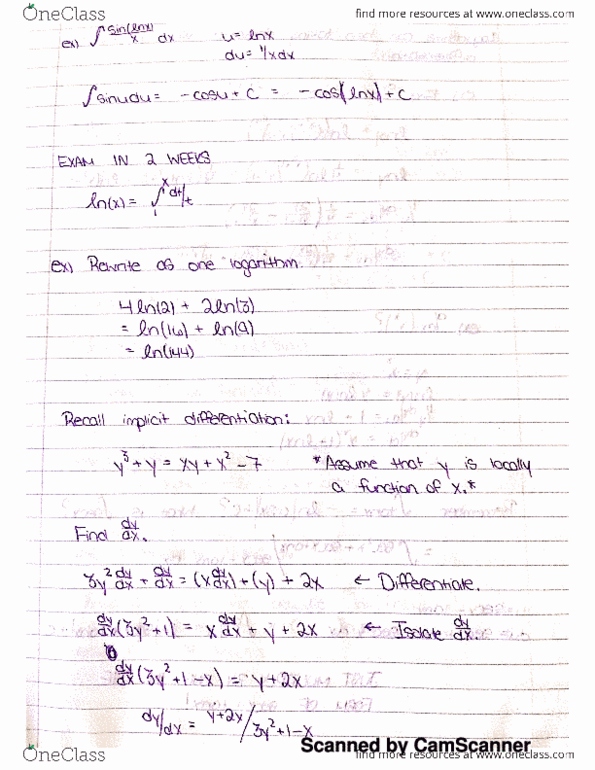 OneClass
find more resources at www.oneclass.com
ex) ∫ sin(lnx)/x dx u = lnx
du = 1/x dx
∫ sinudu = -cosu + C = -cos(lnx) + C
EXAM IN 2 WEEKS
ln(x) = ∫₁ˣ dt/t
ex) Rewrite as one logarithm.
4ln(2) + 2ln(3)
= ln(16) + ln(9)
= ln(144)
Recall implicit differentiation:
y³ + y = xy + x² - 7 *Assume that y is locally
a function of x.*
Find dy/dx.
3y² dy/dx + dy/dx = (x dy/dx) + (y) + 2x ← Differentiate.
dy/dx (3y² + 1) = x dy/dx + y + 2x ← Isolate dy/dx.
dy/dx (3y² + 1 - x) = y + 2x
dy/dx = y + 2x / 3y² + 1 - x
Scanned by CamScanner
OneClass
find more resources at www.oneclass.com